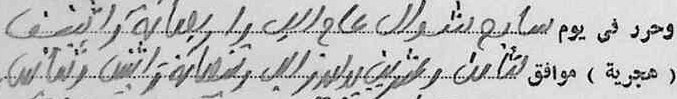 وحرر فى يوم سابع شوال عام الف و اربعمائة و اثنين
( هجرية ) موافق ثامن وعشرين يوليوز الف وتسعمائة واثنين وثمانين